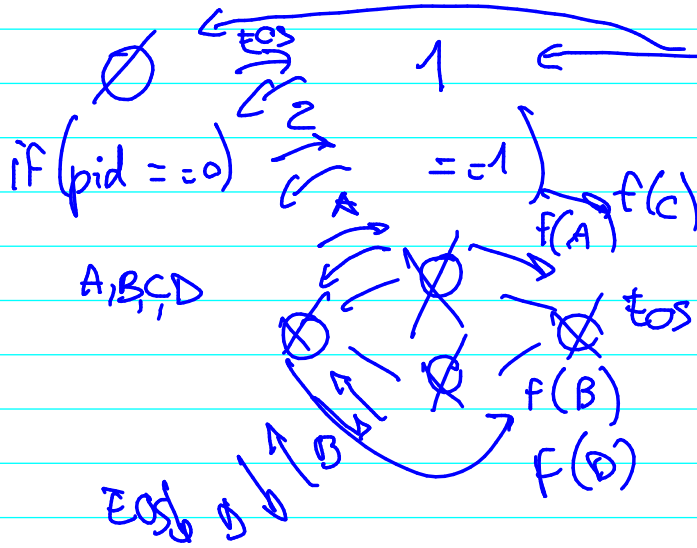 ∅ EOS 1
2
if (pid == 0) == 1)
A f(A) f(C)
A,B,C,D
EOS
f(B)
B
F(D)
EOS D